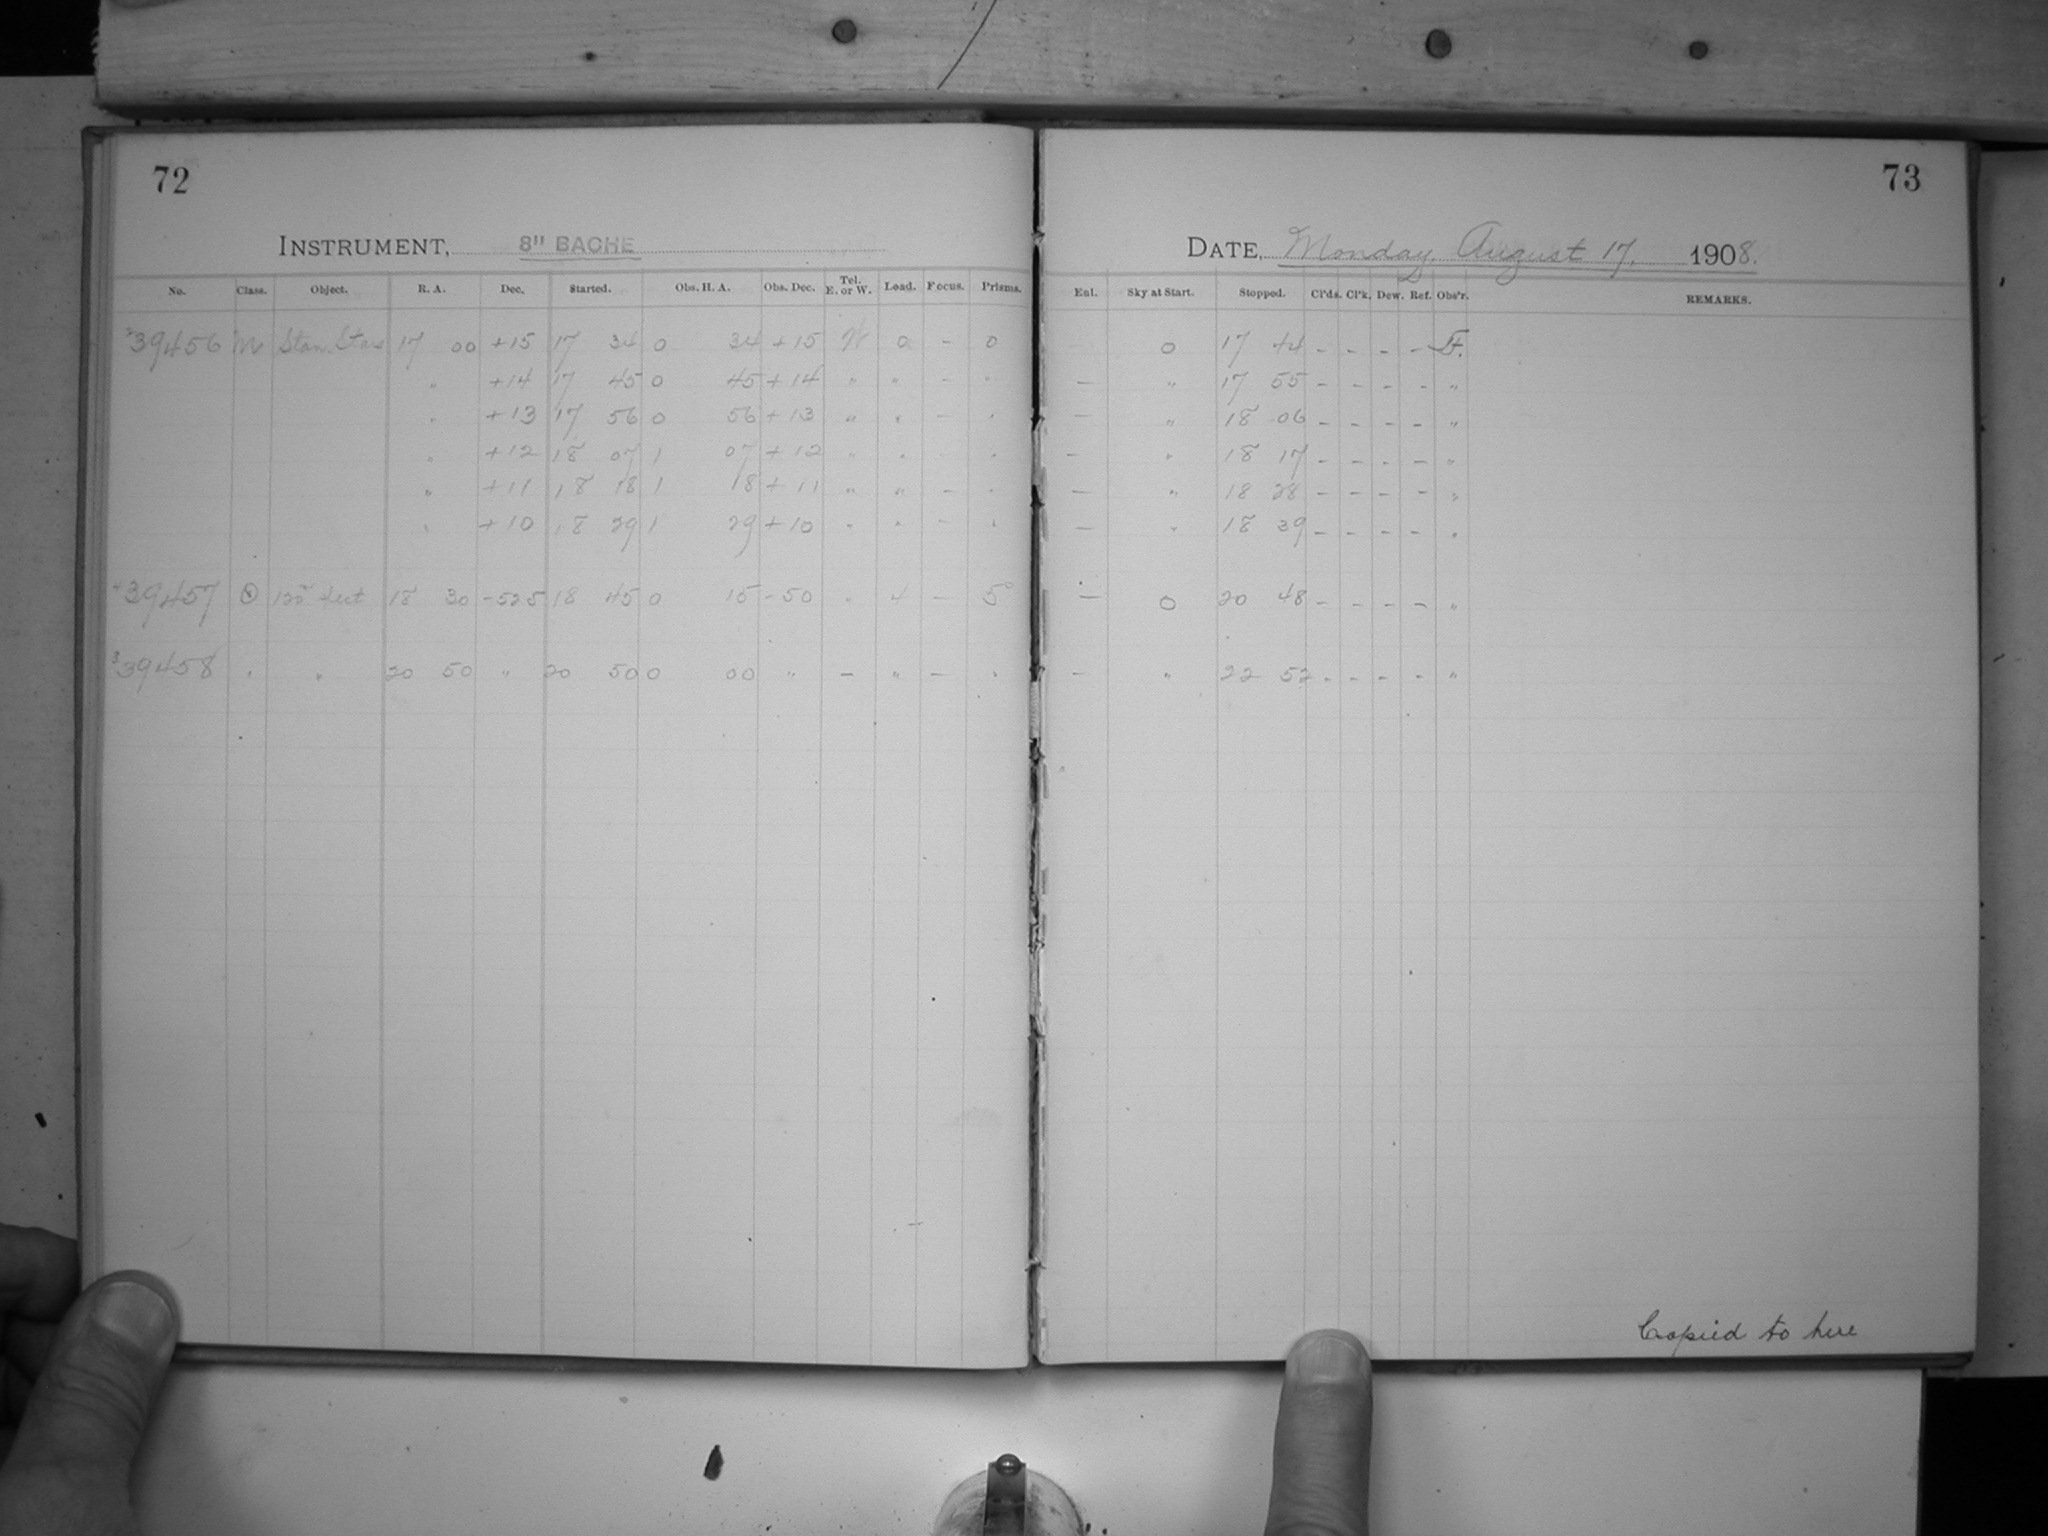 72
INSTRUMENT, 8" BACHE
No. Class. Object. R. A. Dec. Started. Obs. H. A. Obs. Dec. Tel. E. or W. Load. Focus. Prisms.
39456 M Stan. Stars 17 00 +15 17 34 0 34 +15 W 0 - 0
" +14 17 45 0 45 +14 " " - "
" +13 17 56 0 56 +13 " " - "
" +12 18 07 1 07 +12 " " - "
" +11 18 18 1 18 +11 " " - "
" +10 18 29 1 29 +10 " " - "
39457 120m 18 30 -52 5 18 45 0 15 -50 " 4 - 5°
39458 " " 20 50 " 20 50 0 00 " - " - "
73
DATE, Monday, August 17, 1908.
Enl. Sky at Start. Stopped. Cl'ds. Cl'k. Dew. Ref. Obs'r. REMARKS.
0 17 44 - - - -
- " 17 55 - - - - "
- " 18 06 - - - - "
- " 18 17 - - - - "
- " 18 28 - - - - "
- " 18 39 - - - - "
- 0 20 48 - - - - "
- " 22 52 - - - - "
Copied to here